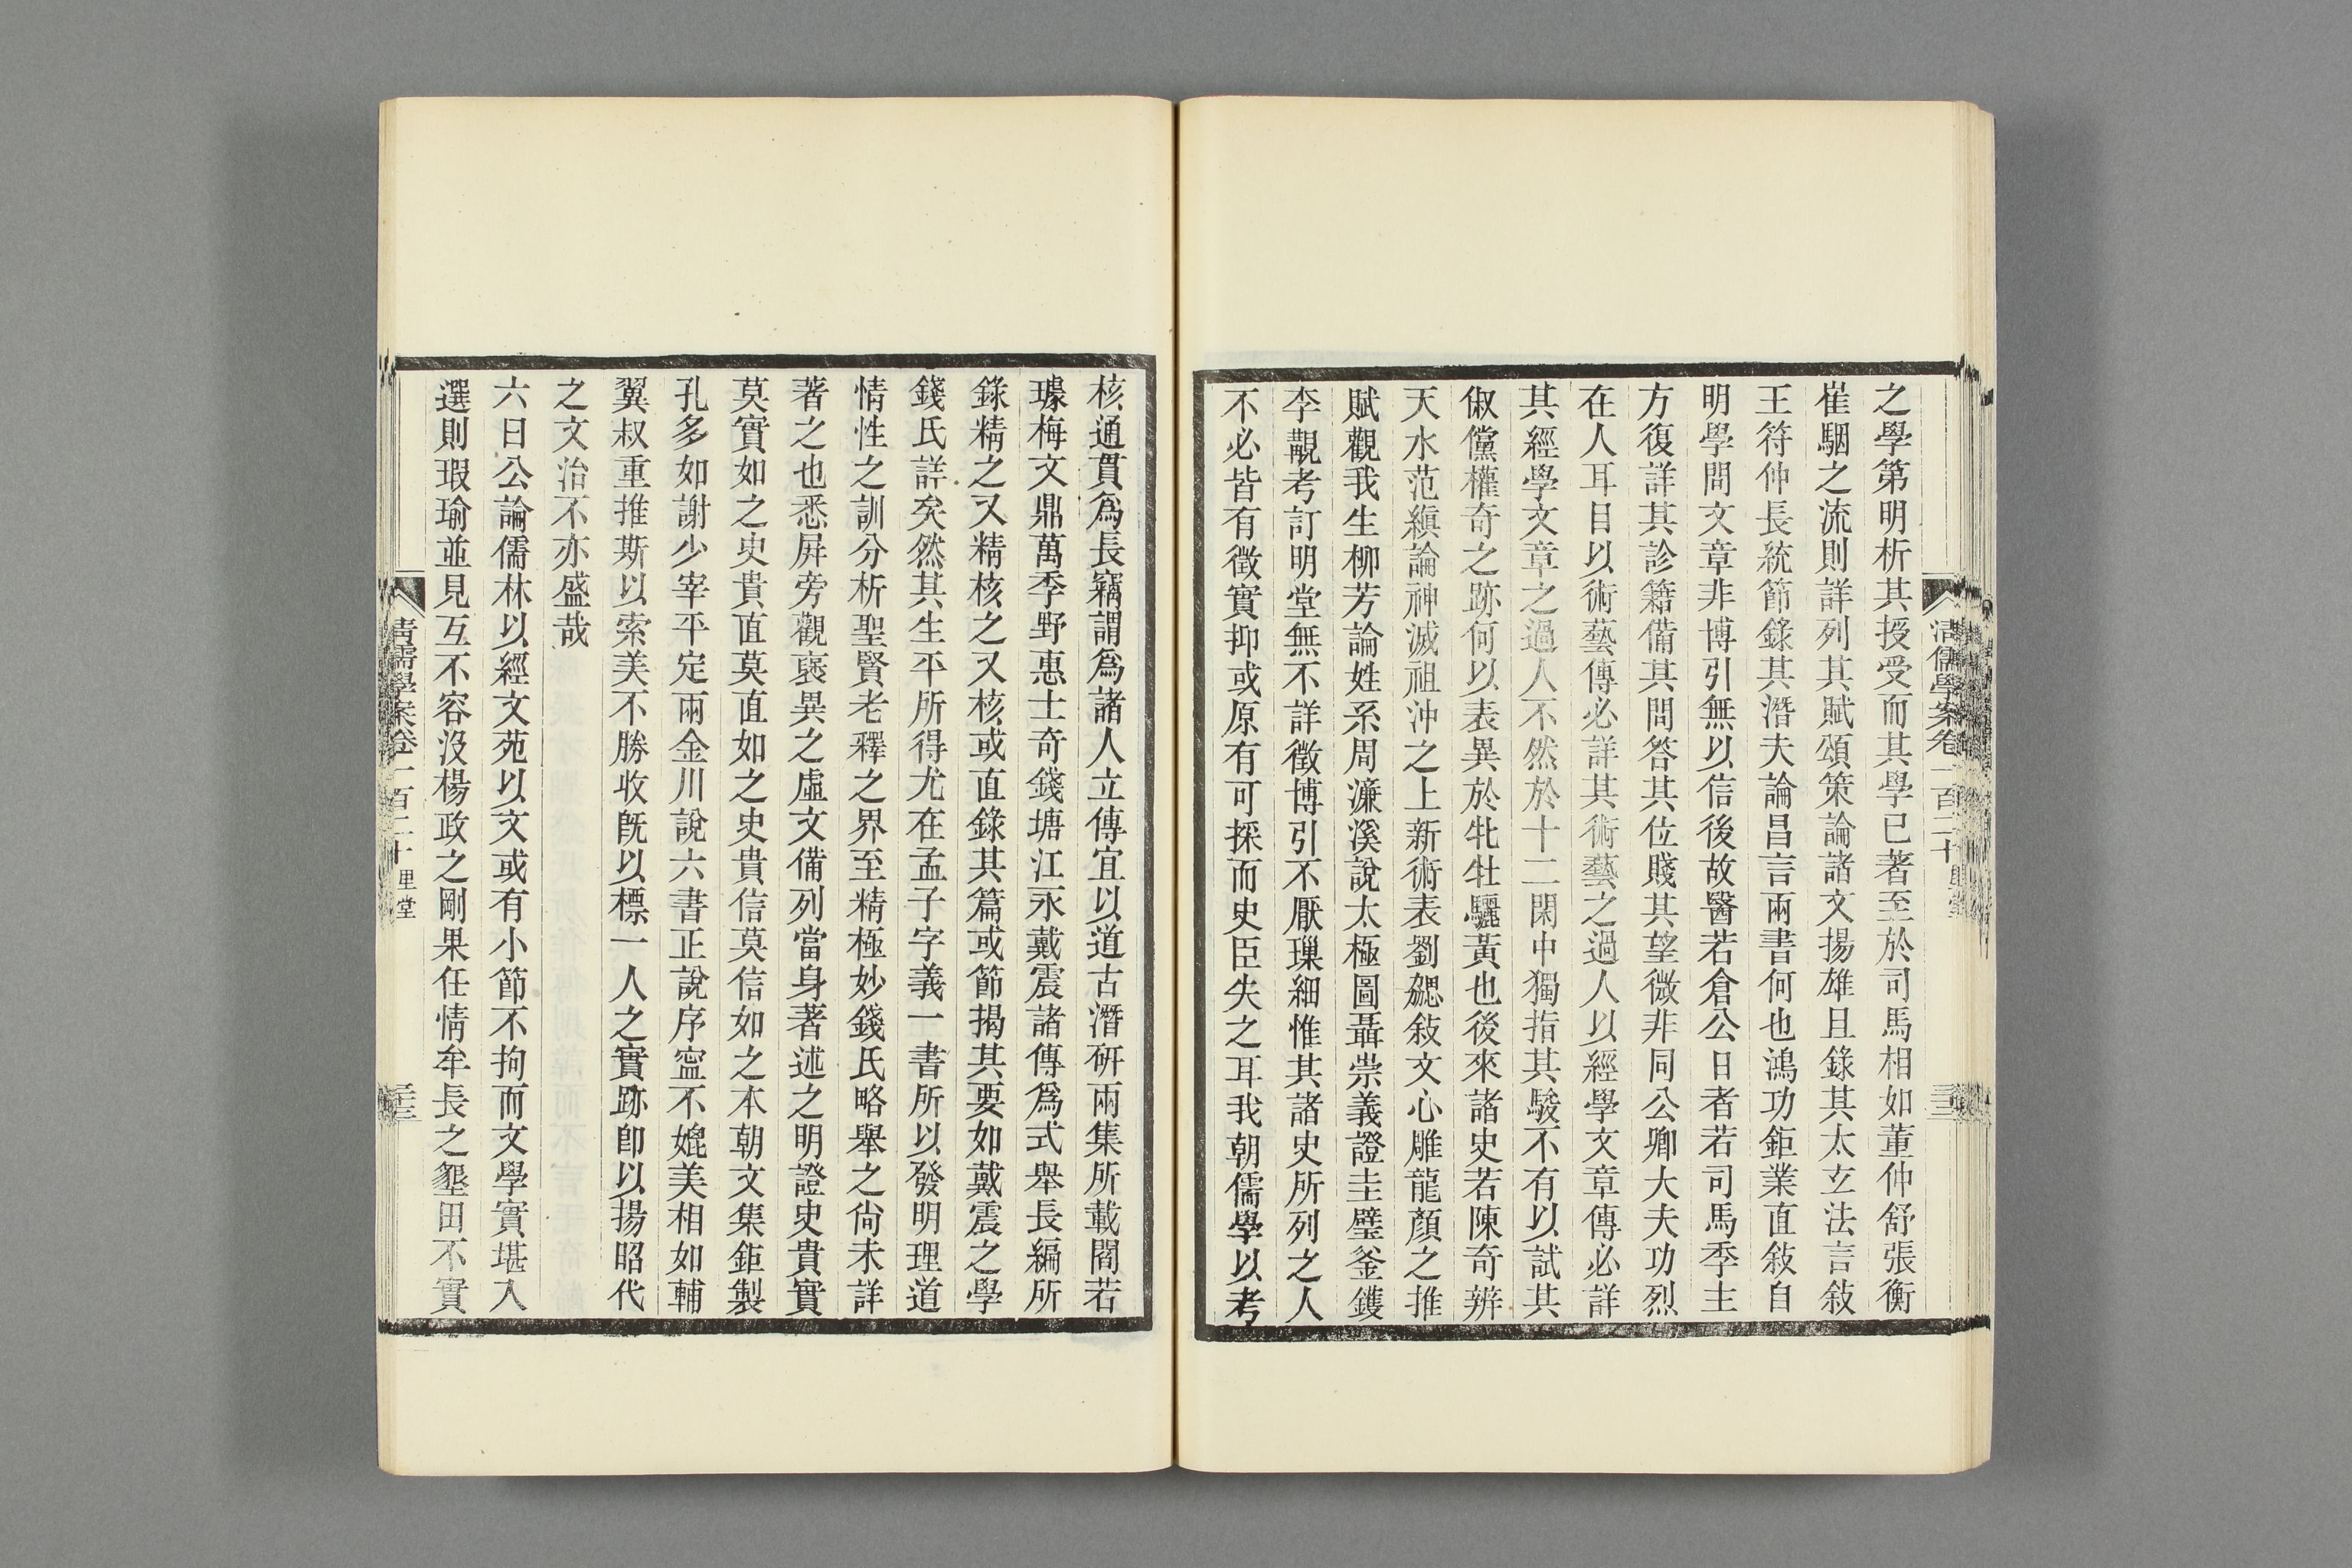 之學第明析其授受而其學已著至於司馬相如董仲舒張衡
崔駰之流則詳列其賦頌策論諸文揚雄且錄其太玄法言敍
王符仲長統節錄其潛夫論昌言兩書何也鴻功鉅業直敍自
明學問文章非博引無以信後故醫若倉公日者若司馬季主
方復詳其診籍備其問答其位賤其望微非同公卿大夫功烈
在人耳目以術藝傳必詳其術藝之過人以經學文章傳必詳
其經學文章之過人不然於十二閑中獨指其駿不有以試其
俶儻權奇之跡何以表異於牝牡驪黃也後來諸史若陳奇辨
天水范縝論神滅祖沖之上新術表劉勰敍文心雕龍顏之推
賦觀我生柳芳論姓系周濂溪說太極圖聶崇義證圭璧釜鑊
李觏考訂明堂無不詳徵博引不厭璅細惟其諸史所列之人
不必皆有徵實抑或原有可採而史臣失之耳我朝儒學以考
清儒學案卷一百二十 里堂
核通貫爲長竊謂爲諸人立傳宜以道古潛硏兩集所載閻若
璩梅文鼎萬季野惠士奇錢塘江永戴震諸傳爲式舉長編所
錄精之又精核之又核或直錄其篇或節揭其要如戴震之學
錢氏詳矣然其生平所得尤在孟子字義一書所以發明理道
情性之訓分析聖賢老釋之界至精極妙錢氏略舉之尙未詳
著之也悉屛旁觀襃異之虛文備列當身著述之明證史貴實
莫實如之史貴直莫直如之史貴信莫信如之本朝文集鉅製
孔多如謝少宰平定兩金川說六書正說序寍不媲美相如輔
翼叔重推斯以索美不勝收旣以標一人之實跡卽以揚昭代
之文治不亦盛哉
六曰公論儒林以經文苑以文或有小節不拘而文學實堪入
選則瑕瑜並見互不容沒楊政之剛果任情牟長之墾田不實
清儒學案卷一百二十 里堂